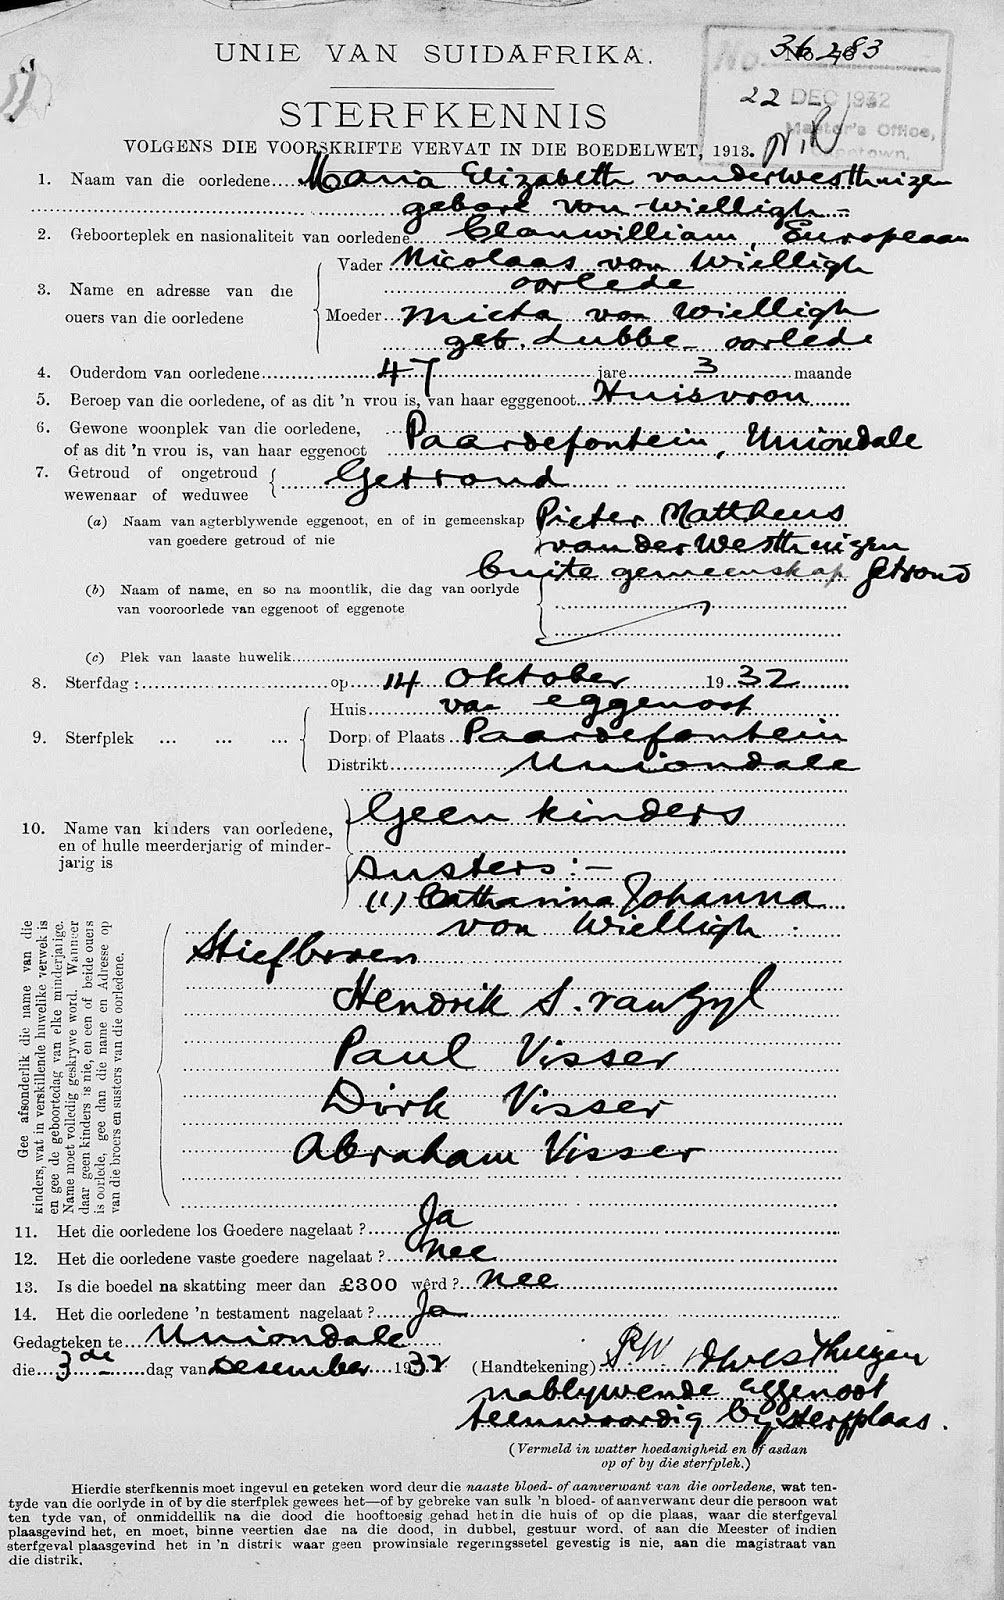 UNIE VAN SUIDAFRIKA.
No. 36283
22 DEC 1932
Master's Office,
Capetown.
STERFKENNIS
VOLGENS DIE VOORSKRIFTE VERVAT IN DIE BOEDELWET, 1913.
1. Naam van die oorledene Maria Elizabeth van der Westhuizen
gebore von Wielligh
2. Geboorteplek en nasionaliteit van oorledene Clanwilliam, Europeaan
3. Name en adresse van die ouers van die oorledene
Vader Nicolaas von Wielligh
oorlede
Moeder Micta von Wielligh
geb. Lubbe - oorlede
4. Ouderdom van oorledene 47 jare 3 maande
5. Beroep van die oorledene, of as dit 'n vrou is, van haar egggenoot Huisvrou
6. Gewone woonplek van die oorledene,
of as dit 'n vrou is, van haar eggenoot Paardefontein, Uniondale
7. Getroud of ongetroud
wewenaar of weduwee Getroud
(a) Naam van agterblywende eggenoot, en of in gemeenskap
van goedere getroud of nie
Pieter Mattheus
van der Westhuizen
Buite gemeenskap getroud
(b) Naam of name, en so na moontlik, die dag van oorlyde
van vooroorlede van eggenoot of eggenote
(c) Plek van laaste huwelik
8. Sterfdag: op 14 Oktober 1932
9. Sterfplek ... ... ...
Huis van eggenoot
Dorp of Plaats Paardefontein
Distrikt Uniondale
10. Name van kinders van oorledene,
en of hulle meerderjarig of minder-
jarig is
Geen kinders
Susters:-
(1) Catharina Johanna
von Wielligh
Gee afsonderlik die name van die
kinders, wat in verskillende huwelike verwek is
en gee de geboortedag van elke minderjarige.
Name moet volledig geskrywe word. Wanneer
daar geen kinders is nie, en een of beide ouers
is oorlede, gee dan die name en Adresse op
van die broers en susters van die oorledene.
Stiefbroen
Hendrik S. van Zyl
Paul Visser
Dirk Visser
Abraham Visser
11. Het die oorledene los Goedere nagelaat? Ja
12. Het die oorledene vaste goedere nagelaat? Nee
13. Is die boedel na skatting meer dan £300 wêrd? Nee
14. Het die oorledene 'n testament nagelaat? Ja
Gedagteken te Uniondale
die 3de dag van Desember 1932 (Handtekening)
nablywende Eggenoot
teenwoordig by sterfplaas.
(Vermeld in watter hoedanigheid en of asdan
op of by die sterfplek.)
Hierdie sterfkennis moet ingevul en geteken word deur die naaste bloed- of aanverwant van die oorledene, wat ten-
tyde van die oorlyde in of by die sterfplek gewees het—of by gebreke van sulk 'n bloed- of aanverwant deur die persoon wat
ten tyde van, of onmiddellik na die dood die hooftoesig gehad het in die huis of op die plaas, waar die sterfgeval
plaasgevind het, en moet, binne veertien dae na die dood, in dubbel, gestuur word, of aan die Meester of indien
sterfgeval plaasgevind het in 'n distrik waar geen provinsiale regeringssetel gevestig is nie, aan die magistraat van
die distrik.